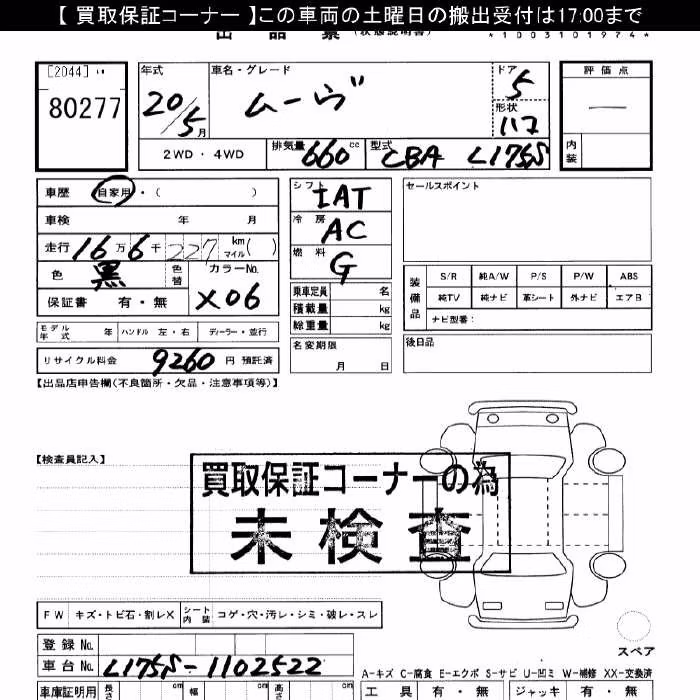 【 買取保証コーナー 】この車両の土曜日の搬出受付は17:00まで
出品票 (状態説明書) *1003101974*
[2044] 年式 車名・グレード ドア 評価点
80277 20/5月 ムーヴ 5 —
形状 ハコ
2WD・4WD 排気量 660cc 型式 CBA L175S 内装
車歴 自家用・( ) シフト IAT セールスポイント
車検 年 月 冷房 AC
走行 16万6千227 km マイル ( ) 燃料 G
色 黒 色替 カラーNo. X06
保証書 有・無
乗車定員 名
積載量 kg
総重量 kg
装備品 S/R 純A/W P/S P/W ABS
純TV 純ナビ 革シート 外ナビ エアB
ナビ型番:
モデル年式 年 ハンドル 左・右 ディーラー・並行
名変期限 月 日
後日品
リサイクル料金 9260 円 預託済
【出品店申告欄(不良箇所・欠品・注意事項等)】
【検査員記入】
買取保証コーナーの為
未検査
FW キズ・トビ石・割レX シート内装 コゲ・穴・汚レ・シミ・破レ・スレ
登録No.
スペア
車台No. L175S-1102522
A-キズ C-腐食 E-エクボ S-サビ U-凹ミ W-補修 XX-交換済
車庫証明用 長さ cm 幅 cm 高さ cm 工具 有・無 ジャッキ 有・無